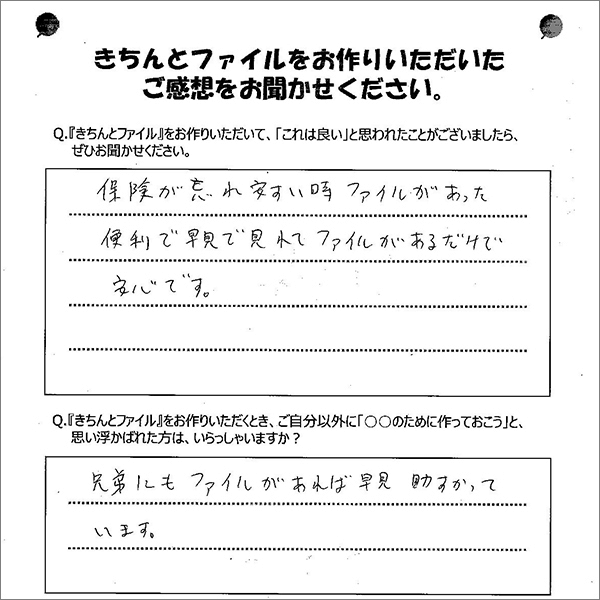 きちんとファイルをお作りいただいた
ご感想をお聞かせください。
Q.『きちんとファイル』をお作りいただいて、「これは良い」と思われたことがございましたら、
ぜひお聞かせください。
保険が忘れ安すい時 ファイルがあった
便利で早見で見れてファイルがあるだけで
安心です。
Q.『きちんとファイル』をお作りいただくとき、ご自分以外に「○○のために作っておこう」と、
思い浮かばれた方は、いらっしゃいますか？
兄弟にも ファイルがあれば早見 助すかって
います。